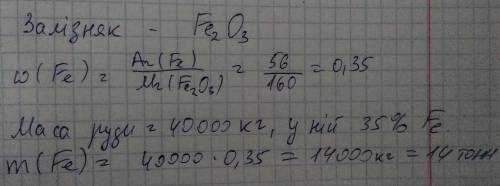 Залізняк - Fe₂O₃
ω(Fe) = Ar(Fe)/Mr(Fe₂O₃) = 56/160 = 0,35
Маса руди = 40000 кг, у ній 35% Fe.
m(Fe) = 40000 · 0,35 = 14000 кг = 14 тонн